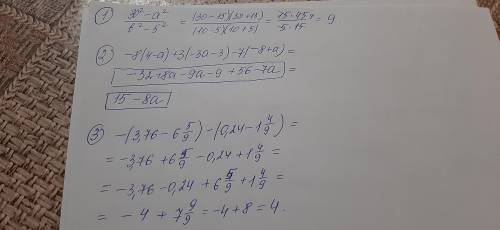 ① 30² - a² / б² - 5² = (30-15)(30+15) / (10-5)(10+5) = 15·45 / 5·15 = 9
② -8(4-a)+3(-3a-3)-7(-8+a)=
-32+8a-9a-9+56-7a=
15-8a
③ -(3,76-6 5/9)-(0,24-1 4/9)=
= -3,76+6 5/9-0,24+1 4/9=
= -3,76-0,24+6 5/9+1 4/9=
= -4+7 9/9=-4+8=4.